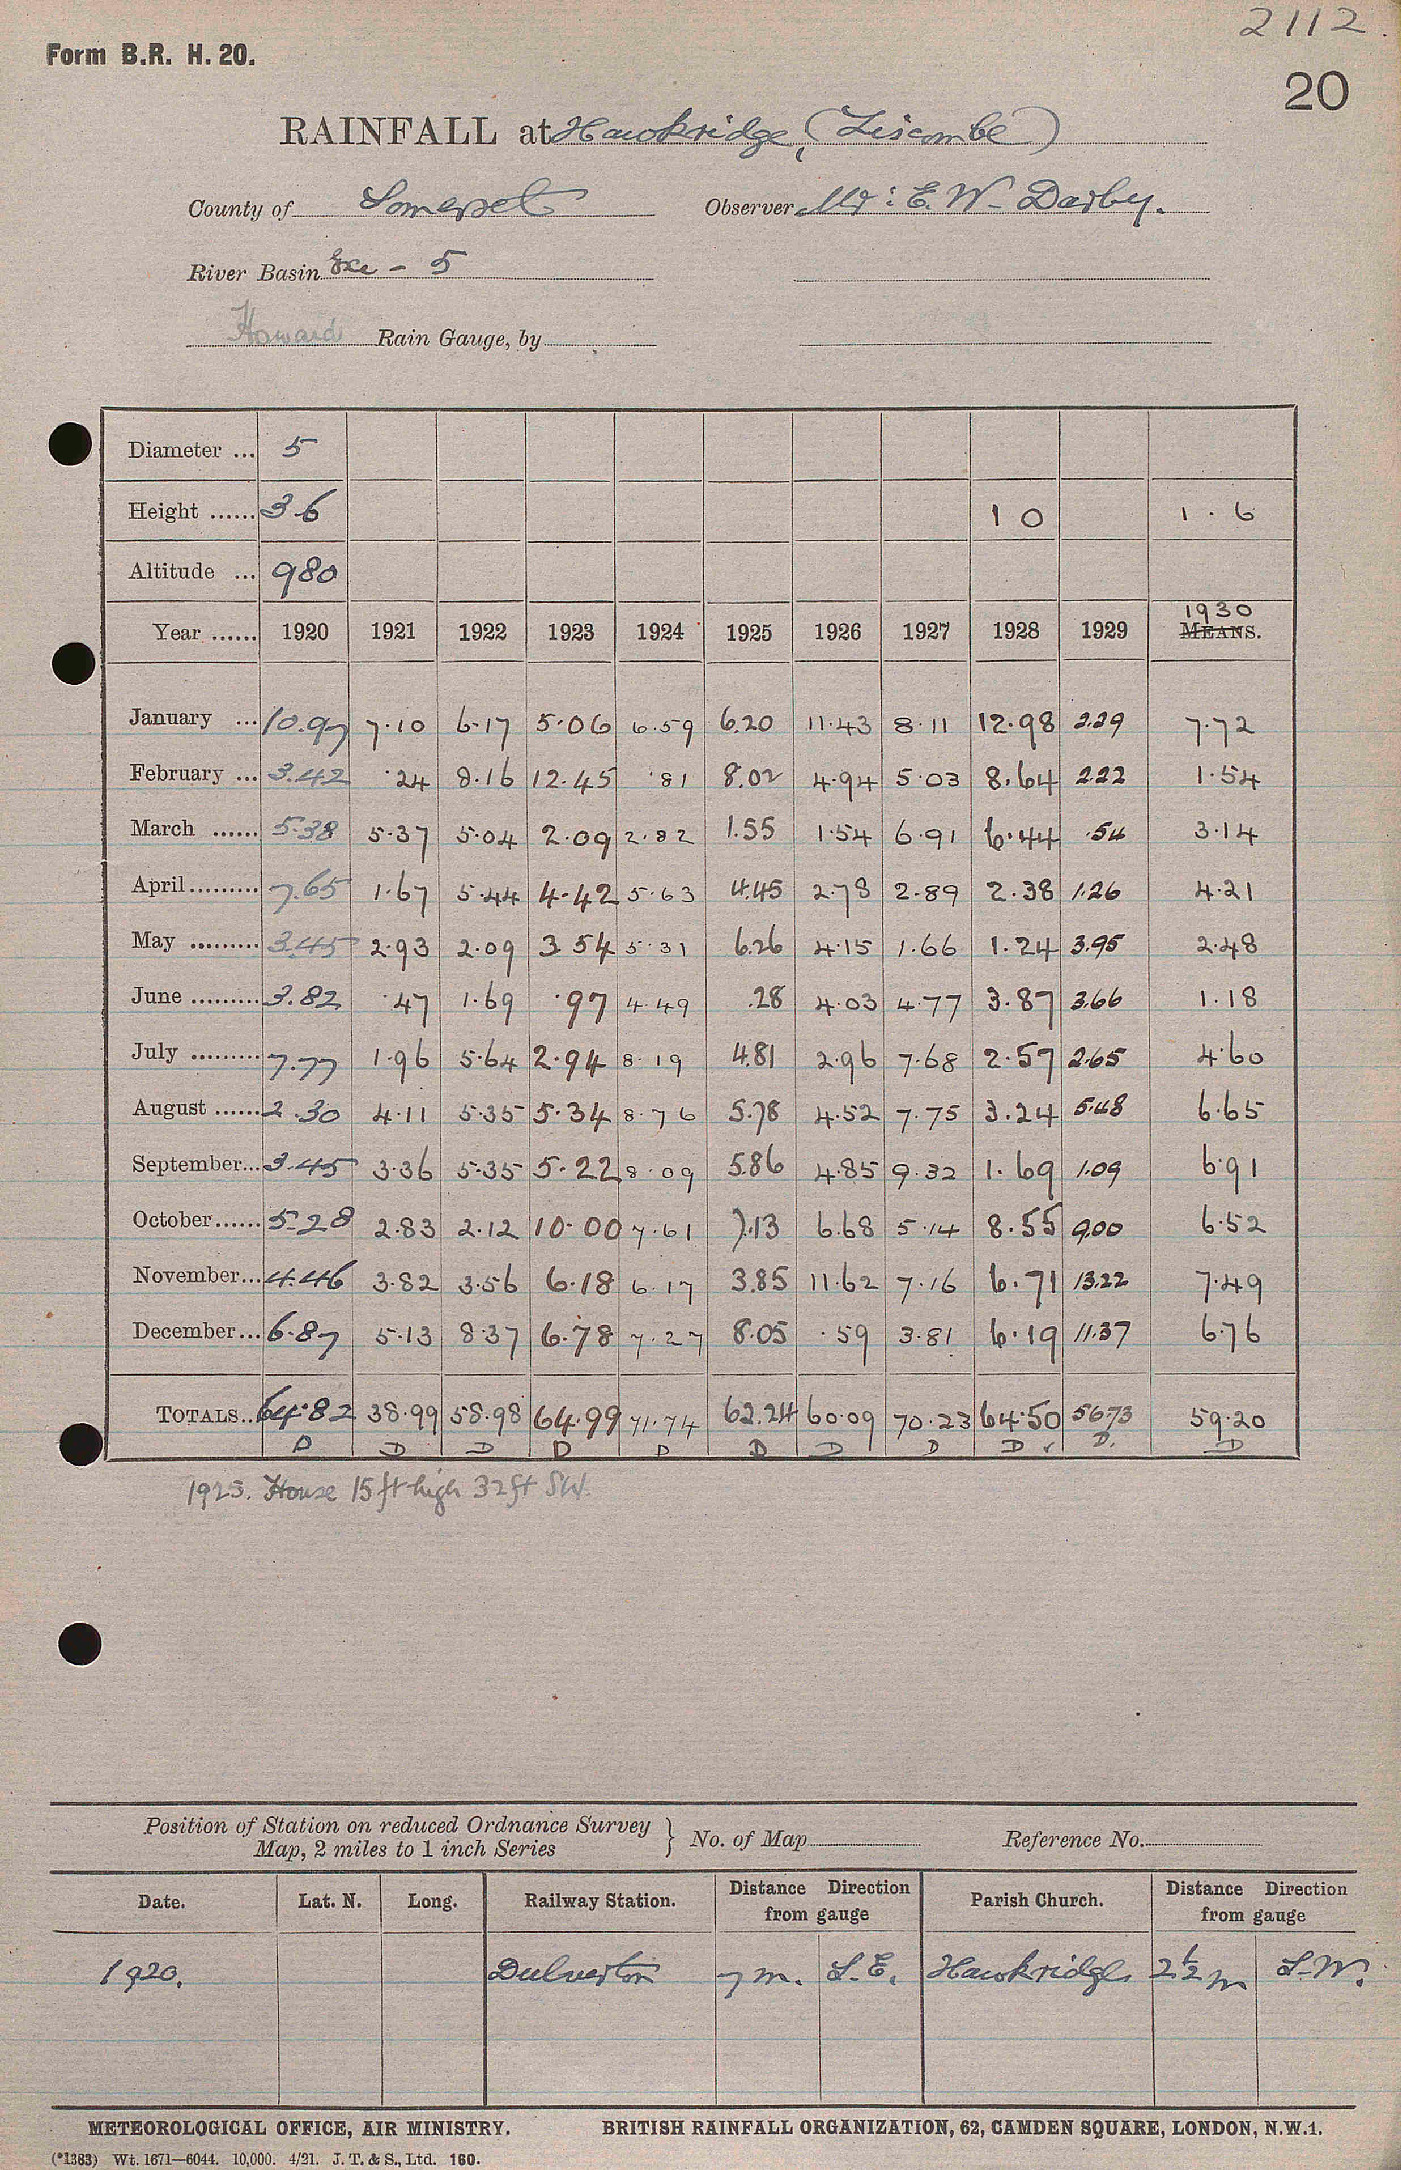 2112.
Form B.R. H. 20.
20
RAINFALL at Hawkridge, (Liscombe)
County of Somerset Observer Mr: E. W. Darby.
River Basin Exe - 5
Howard Rain Gauge, by
Diameter ... 5
Height ...... 3 6 1 0 1 . 6
Altitude ... 980
1930
Year ...... 1920 1921 1922 1923 1924 1925 1926 1927 1928 1929 MEANS.
January ... 10.97 7.10 6.17 5.06 6.59 6.20 11.43 8.11 12.98 2.29 7.72
February ... 3.42 .24 8.16 12.45 .81 8.02 4.94 5.03 8.64 2.22 1.54
March ...... 5.38 5.37 5.04 2.09 2.82 1.55 1.54 6.91 6.44 .54 3.14
April ......... 7.65 1.67 5.44 4.42 5.63 4.45 2.78 2.89 2.38 1.26 4.21
May ......... 3.45 2.93 2.09 3 54 5.31 6.26 4.15 1.66 1.24 3.95 2.48
June ......... 3.82 .47 1.69 .97 4.49 .28 4.03 4.77 3.87 3.66 1.18
July ......... 7.77 1.96 5.64 2.94 8.19 4.81 2.96 7.68 2.57 2.65 4.60
August ...... 2.30 4.11 5.35 5.34 8.76 5.78 4.52 7.75 3.24 5.48 6.65
September... 3.45 3.36 5.35 5.22 8.09 5.86 4.85 9.32 1.69 1.09 6.91
October...... 5.28 2.83 2.12 10.00 7.61 7.13 6.68 5.14 8.55 9.00 6.52
November... 4.46 3.82 3.56 6.18 6.17 3.85 11.62 7.16 6.71 13.22 7.49
December... 6.87 5.13 8.37 6.78 7.27 8.05 .59 3.81 6.19 11.37 6.76
TOTALS.. 64.82 38.99 58.98 64.99 71.74 62.24 60.09 70.23 64.50 56.73 59.20
D D D D D D D D D ✓ D. D
1923. House 15 ft high 32 ft SW.
Position of Station on reduced Ordnance Survey
Map, 2 miles to 1 inch Series } No. of Map Reference No.
Date. Lat. N. Long. Railway Station. Distance Direction from gauge Parish Church. Distance Direction from gauge
1920. Dulverton 7 m. S.E. Hawkridge 2½ m S.W.
METEOROLOGICAL OFFICE, AIR MINISTRY. BRITISH RAINFALL ORGANIZATION, 62, CAMDEN SQUARE, LONDON, N.W.1.
(*1383) Wt. 1671—6044. 10,000. 4/21. J. T. & S., Ltd. 160.